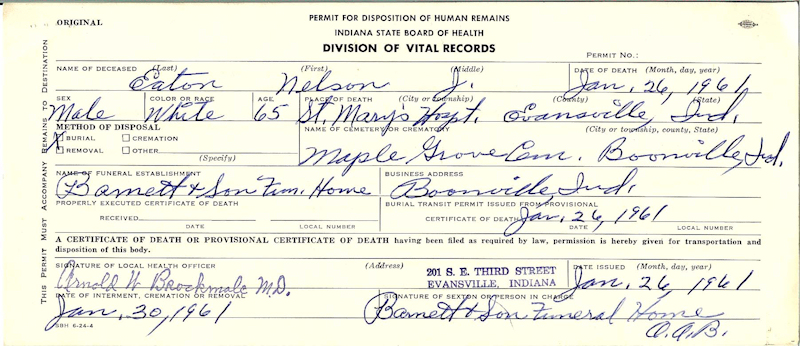 ORIGINAL
PERMIT FOR DISPOSITION OF HUMAN REMAINS
INDIANA STATE BOARD OF HEALTH
DIVISION OF VITAL RECORDS
PERMIT NO.:
THIS PERMIT MUST ACCOMPANY REMAINS TO DESTINATION
NAME OF DECEASED (Last) (First) (Middle) DATE OF DEATH (Month, day, year)
Eaton Nelson J. Jan. 26, 1961
SEX COLOR OR RACE AGE PLACE OF DEATH (City or township) (County) (State)
Male White 65 St. Mary's Hospt. Evansville, Ind.
METHOD OF DISPOSAL NAME OF CEMETERY OR CREMATORY (City or township, county, State)
X BURIAL CREMATION
REMOVAL OTHER
(Specify)
Maple Grove Cem. Boonville, Ind.
NAME OF FUNERAL ESTABLISHMENT BUSINESS ADDRESS
Barnett & Son Fun. Home Boonville, Ind.
PROPERLY EXECUTED CERTIFICATE OF DEATH BURIAL TRANSIT PERMIT ISSUED FROM PROVISIONAL
RECEIVED CERTIFICATE OF DEATH Jan. 26, 1961
DATE LOCAL NUMBER DATE LOCAL NUMBER
A CERTIFICATE OF DEATH OR PROVISIONAL CERTIFICATE OF DEATH having been filed as required by law, permission is hereby given for transportation and
disposition of this body.
SIGNATURE OF LOCAL HEALTH OFFICER (Address) DATE ISSUED (Month, day, year)
Arnold W Brockmole M.D. 201 S. E. THIRD STREET
EVANSVILLE, INDIANA Jan. 26, 1961
DATE OF INTERMENT, CREMATION OR REMOVAL SIGNATURE OF SEXTON OR PERSON IN CHARGE
Jan. 30, 1961 Barnett & Son Funeral Home
O.A.B.
SBH 6-24-4